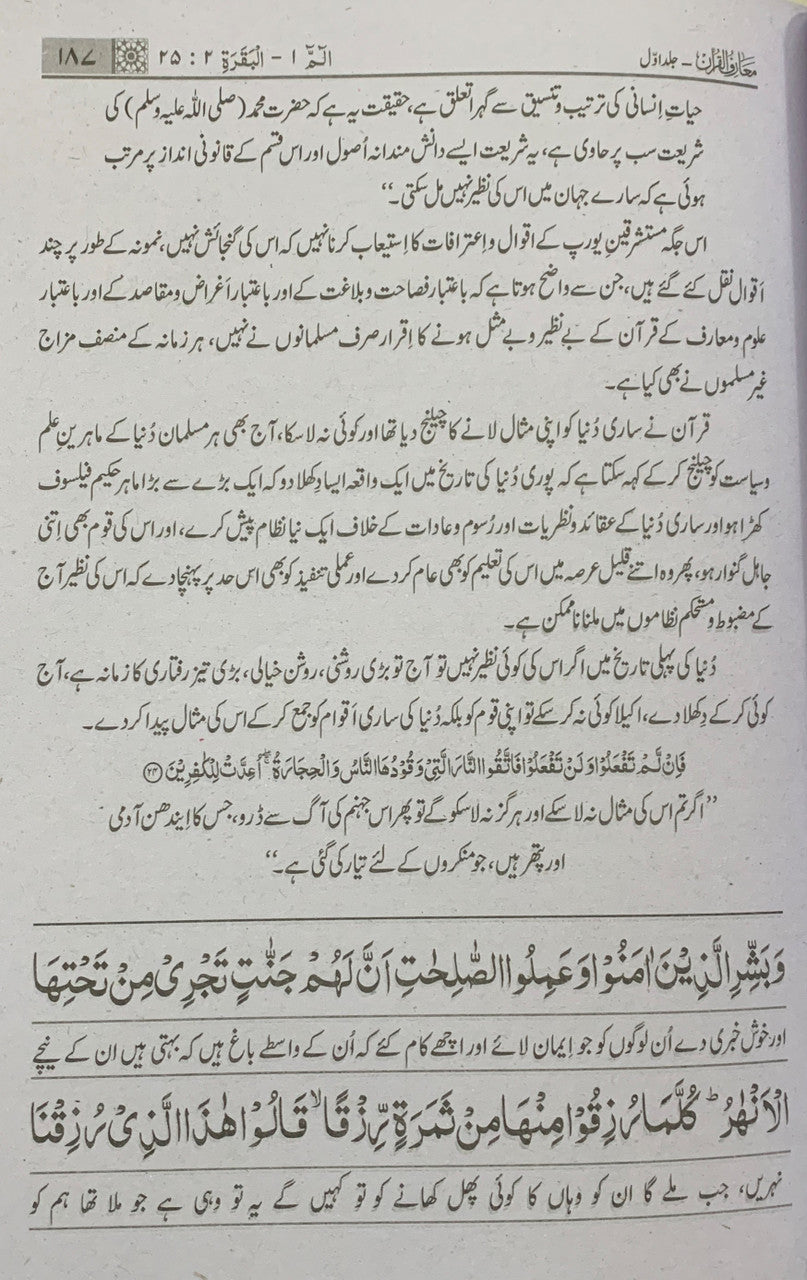 معارف القرآن – جلد اوّل
الٓمّٓ ۱ – اَلْبَقَرَۃِ ۲ : ۲۵
۱۸۷
حیاتِ اِنسانی کی ترتیب و تنسیق سے گہرا تعلق ہے، حقیقت یہ ہے کہ حضرت محمد (صلی اللہ علیہ وسلم) کی
شریعت سب پر حاوی ہے، یہ شریعت ایسے دانش مندانہ اُصول اور اس قسم کے قانونی انداز پر مرتب
ہوئی ہے کہ سارے جہان میں اس کی نظیر نہیں مل سکتی۔“
اس جگہ مستشرقینِ یورپ کے اقوال و اِعترافات کا اِستیعاب کرنا نہیں کہ اس کی گنجائش نہیں، نمونہ کے طور پر چند
اَقوال نقل کئے گئے ہیں، جن سے واضح ہوتا ہے کہ باعتبار فصاحت و بلاغت کے اور باعتبار اَغراض و مقاصد کے اور باعتبار
علوم و معارف کے قرآن کے بے نظیر و بے مثل ہونے کا اِقرار صرف مسلمانوں نے نہیں، ہر زمانہ کے منصف مزاج
غیر مسلموں نے بھی کیا ہے۔
قرآن نے ساری دُنیا کو اپنی مثال لانے کا چیلنج دیا تھا اور کوئی نہ لا سکا، آج بھی ہر مسلمان دُنیا کے ماہرینِ علم
و سیاست کو چیلنج کر کے کہہ سکتا ہے کہ پوری دُنیا کی تاریخ میں ایک واقعہ ایسا دِکھلا دو کہ ایک بڑے سے بڑا ماہر حکیم فیلسوف
کھڑا ہو اور ساری دُنیا کے عقائد و نظریات اور رُسوم و عادات کے خلاف ایک نیا نظام پیش کرے، اور اس کی قوم بھی اِتنی
جاہل گنوار ہو، پھر وہ اتنے قلیل عرصہ میں اس کی تعلیم کو بھی عام کر دے اور عملی تنفیذ کو بھی اس حد پر پہنچا دے کہ اس کی نظیر آج
کے مضبوط و مستحکم نظاموں میں ملنا ناممکن ہے۔
دُنیا کی پہلی تاریخ میں اگر اس کی کوئی نظیر نہیں تو آج تو بڑی روشنی، روشن خیالی، بڑی تیز رفتاری کا زمانہ ہے، آج
کوئی کر کے دِکھلا دے، اکیلا کوئی نہ کر سکے تو اپنی قوم کو بلکہ دُنیا کی ساری اَقوام کو جمع کر کے اس کی مثال پیدا کر دے۔
فَاِنْ لَّمْ تَفْعَلُوْا وَلَنْ تَفْعَلُوْا فَاتَّقُوا النَّارَ الَّتِیْ وَقُوْدُهَا النَّاسُ وَالْحِجَارَةُ ۖۚ اُعِدَّتْ لِلْكٰفِرِیْنَ ﴿۲۴﴾
”اگر تم اس کی مثال نہ لا سکے اور ہرگز نہ لا سکو گے تو پھر اس جہنم کی آگ سے ڈرو، جس کا اِیندھن آدمی
اور پتھر ہیں، جو منکروں کے لئے تیار کی گئی ہے۔“
وَبَشِّرِ الَّذِیْنَ اٰمَنُوْا وَعَمِلُوا الصّٰلِحٰتِ اَنَّ لَهُمْ جَنّٰتٍ تَجْرِیْ مِنْ تَحْتِهَا
اور خوش خبری دے اُن لوگوں کو جو اِیمان لائے اور اچھے کام کئے کہ اُن کے واسطے باغ ہیں کہ بہتی ہیں ان کے نیچے
الْاَنْهٰرُ ؕ كُلَّمَا رُزِقُوْا مِنْهَا مِنْ ثَمَرَةٍ رِّزْقًا ۙ قَالُوْا هٰذَا الَّذِیْ رُزِقْنَا
نہریں، جب ملے گا ان کو وہاں کا کوئی پھل کھانے کو تو کہیں گے یہ تو وہی ہے جو ملا تھا ہم کو